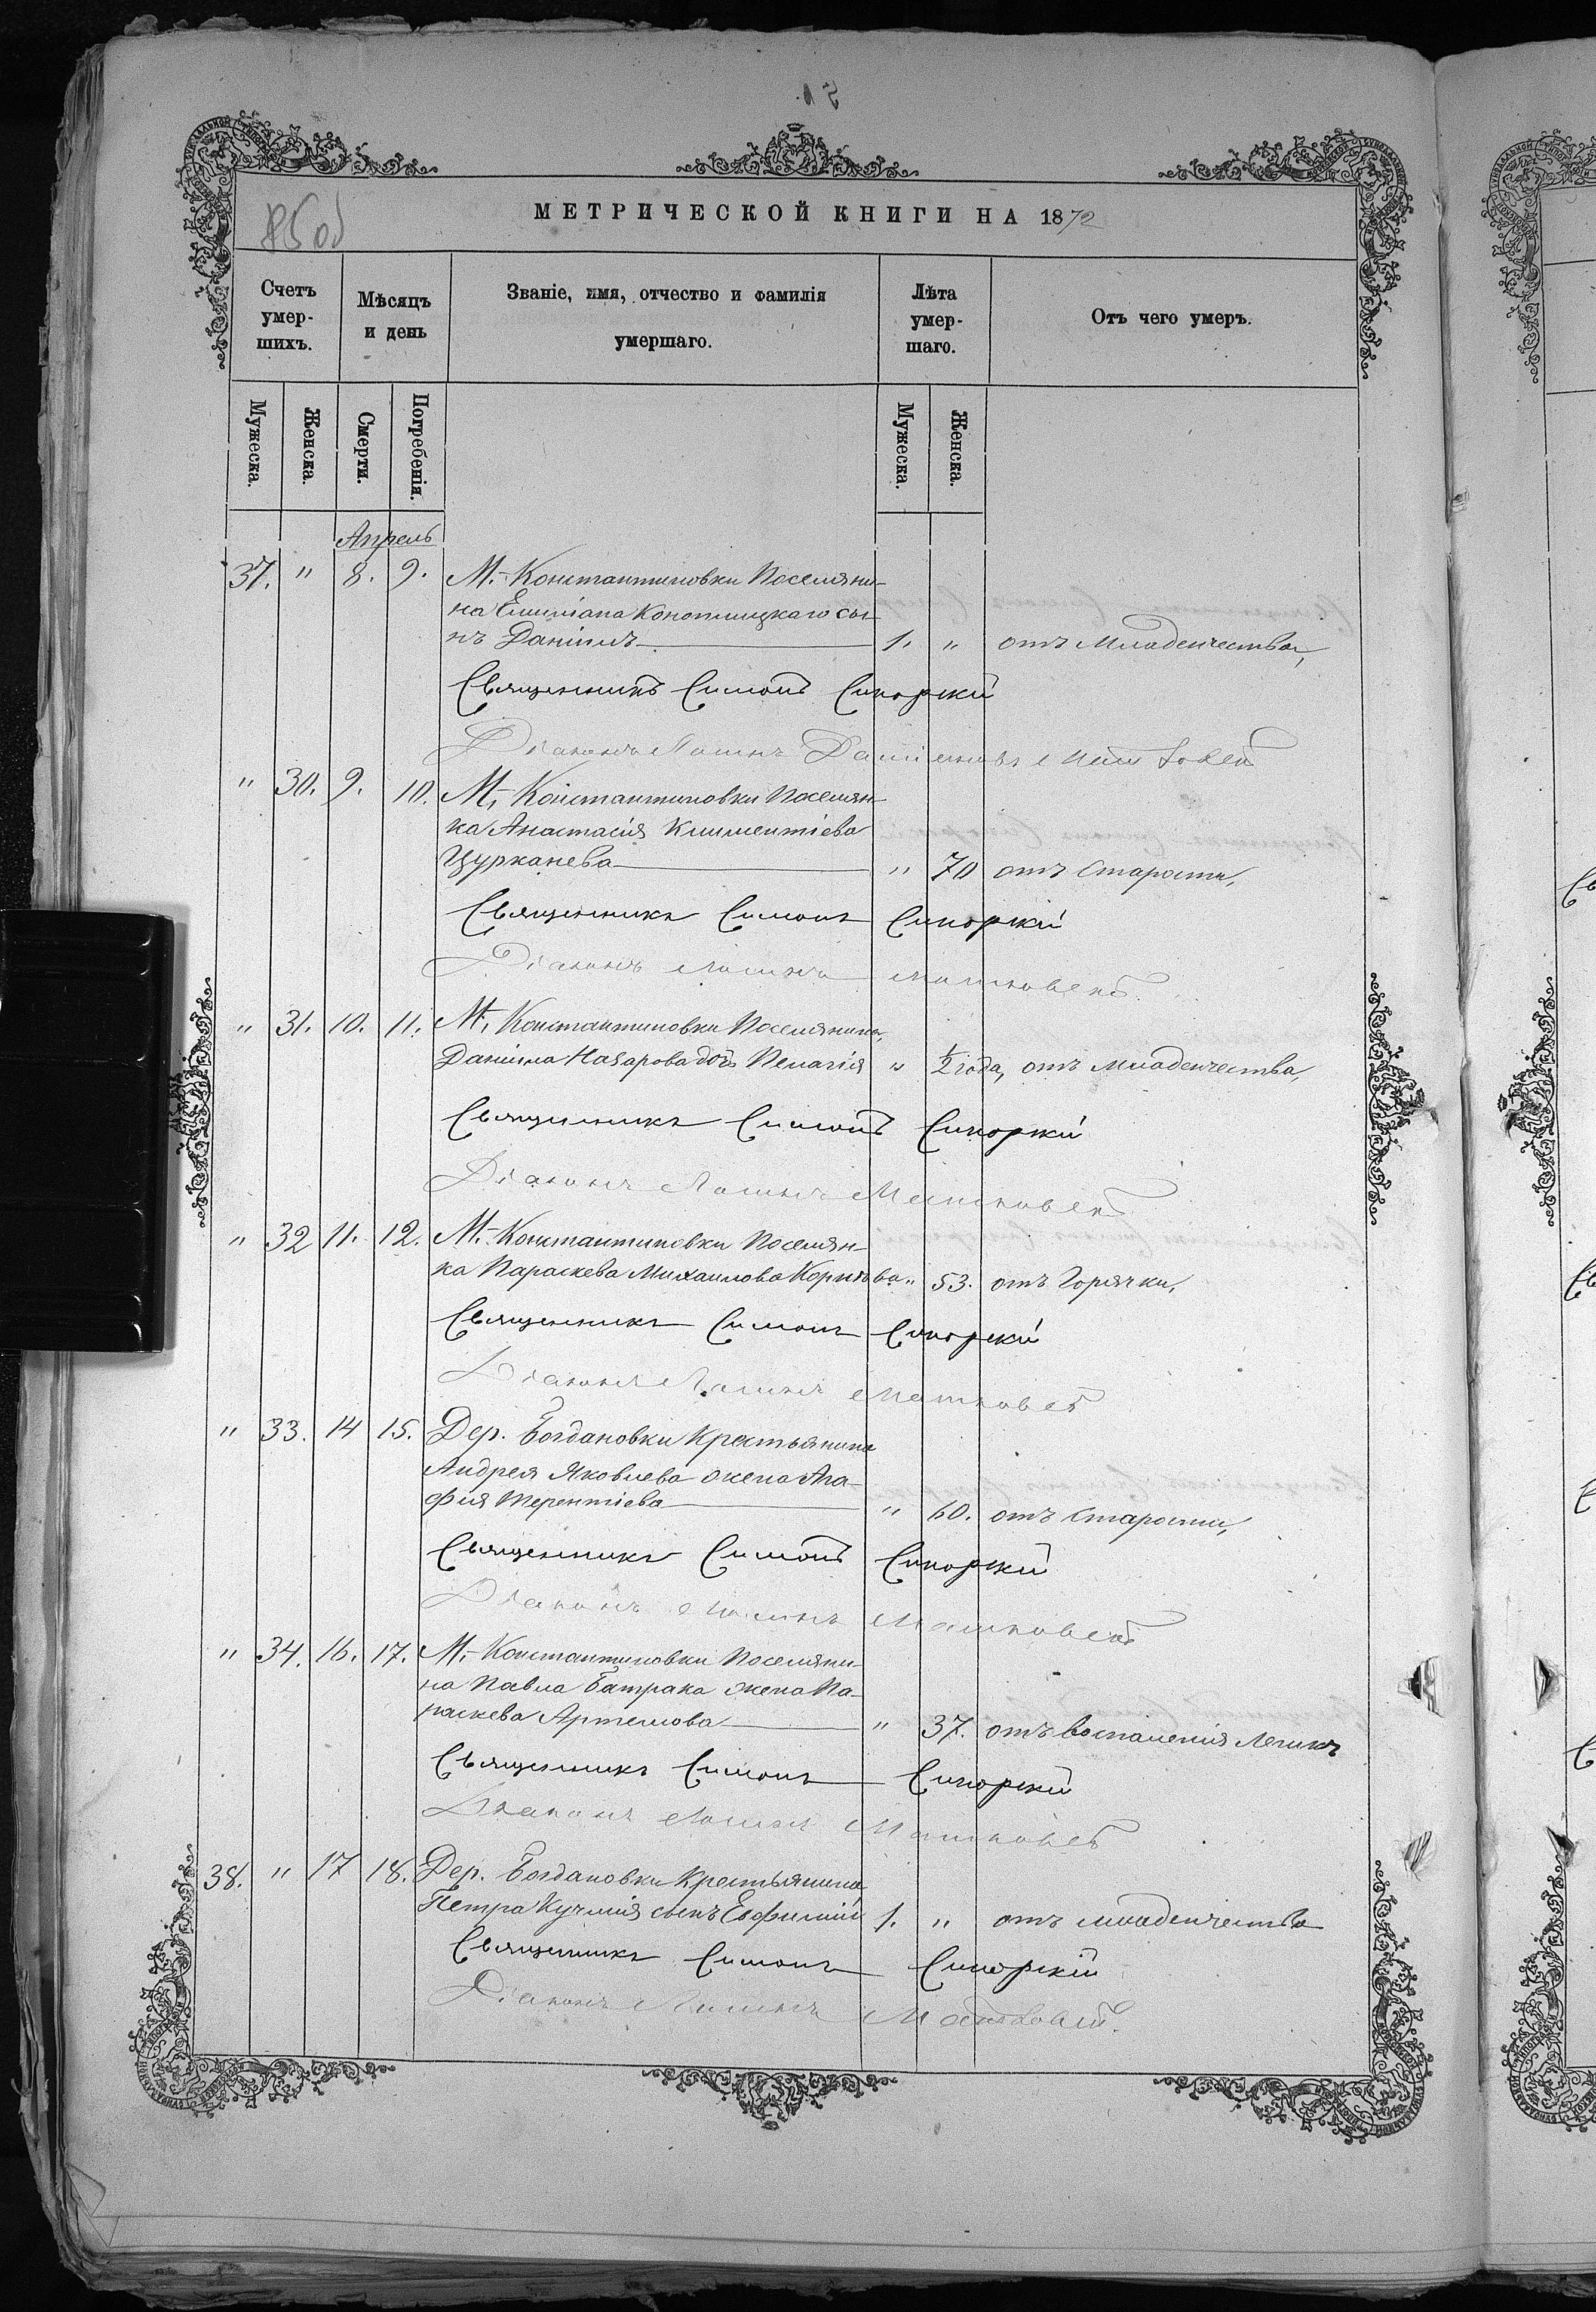 85 об
МЕТРИЧЕСКОЙ КНИГИ НА 1872
Счетъ умер- шихъ.
Мѣсяцъ и день
Званіе, имя, отчество и фамилія умершаго.
Лѣта умер- шаго.
Отъ чего умеръ.
Мужеска. Женска. Смерти. Погребенія. Мужеска. Женска.
Апрель
37. " 8. 9. М. Константиновки Поселяни-
на Емиліана Конотницкаго сы-
нъ Даніилъ 1. " отъ младенчества,
Священникъ Симонъ Сикорскій
Діаконъ
" 30. 9. 10. М. Константиновки Поселян-
ка Анастасія Климентіева
Цурканева " 70 отъ старости,
Священникъ Симонъ Сикорскій
Діаконъ
" 31. 10. 11. М. Константиновки Поселянина,
Даніила Назарова дочь Пелагія " ½ года, отъ младенчества,
Священникъ Симонъ Сикорскій
Діаконъ
" 32 11. 12. М. Константиновки Поселян-
ка Параскева Михаилова " 53. отъ горячки,
Священникъ Симонъ Сикорскій
Діаконъ
" 33. 14 15. Дер. Богдановки Крестьянина
Андрея Яковлева жена Ага-
фия Терентіева " 60. отъ старости,
Священникъ Симонъ Сикорскій
Діаконъ
" 34. 16. 17. М. Константиновки Поселяни-
на Павла Батрака жена Па-
раскева Артемова " 37. отъ воспаленія легкихъ
Священникъ Симонъ Сикорскій
Діаконъ
38. " 17 18. Дер. Богдановки Крестьянина
Петра Кучмія сынъ Евфимій 1. " отъ младенчества
Священникъ Симонъ Сикорскій
Діаконъ